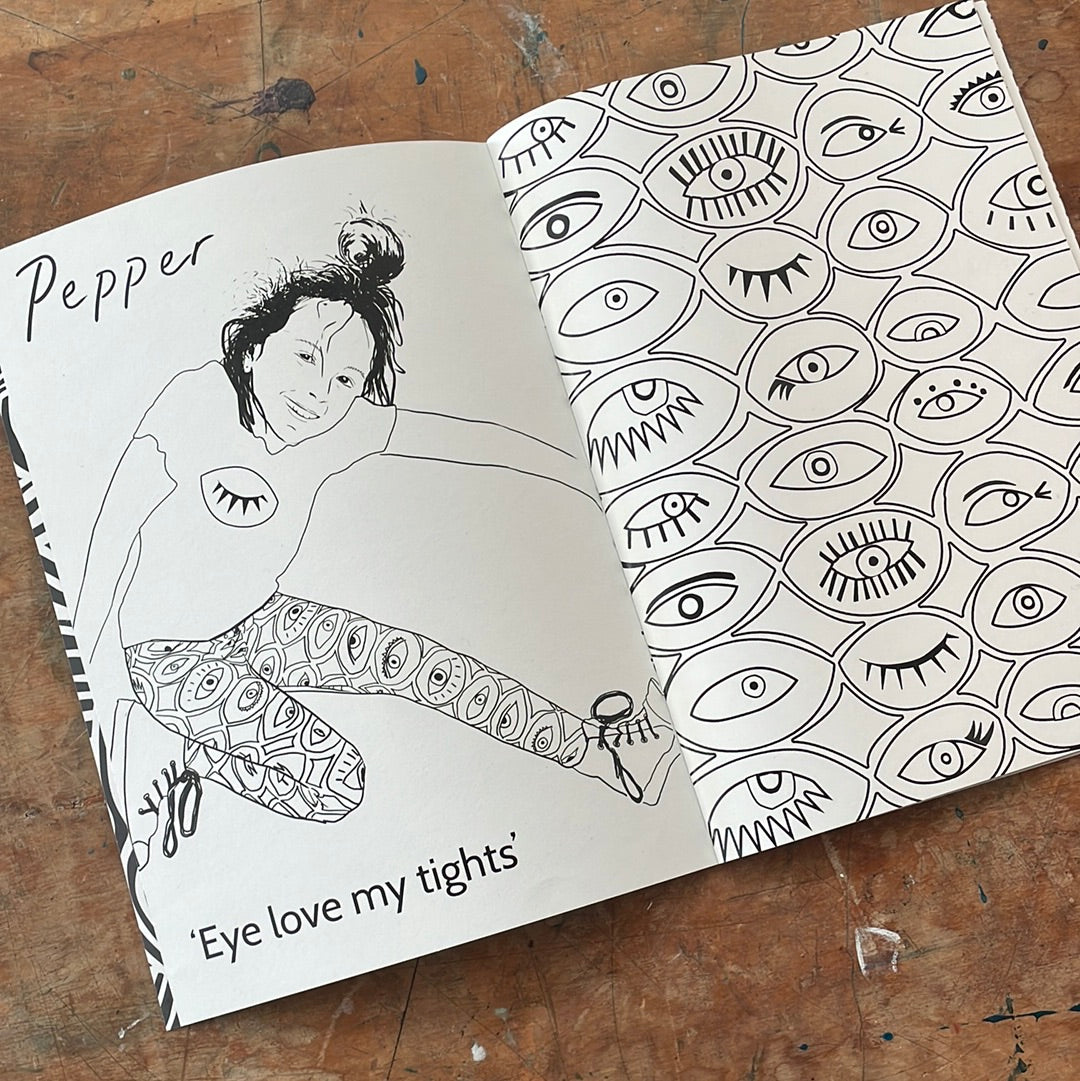 Pepper
‘Eye love my tights’